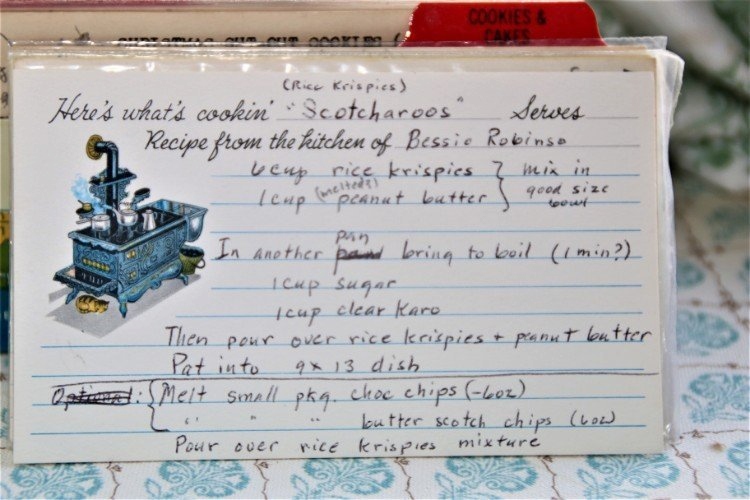 COOKIES &
CAKES
CHRISTMAS CUT OUT COOKIES (
(Rice Krispies)
Here's what's cookin' "Scotcharoos" Serves
Recipe from the kitchen of Bessie Robinso
6 cup rice krispies } mix in
good size
bowl
(melted?)
1 cup peanut butter
pan
In another bring to boil (1 min?)
1 cup sugar
1 cup clear Karo
Then pour over rice krispies + peanut butter
Pat into 9 x 13 dish
Optional: { Melt small pkg. choc chips (-6oz)
" " " butter scotch chips (6oz)
Pour over rice krispies mixture